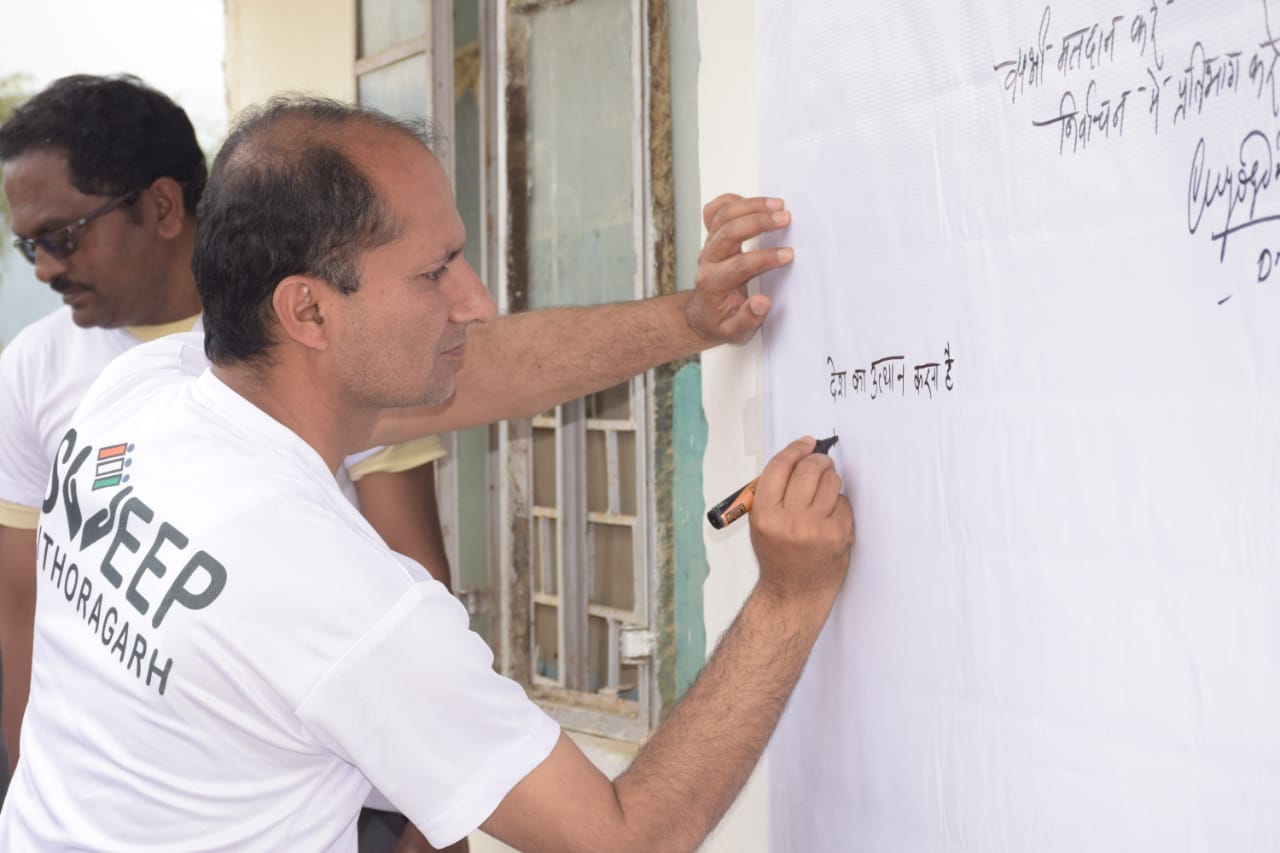 मतदान करें
निर्वाचन में प्रतिभाग करें
देश का उत्थान करना है
SWEEP
ITHORAGARH